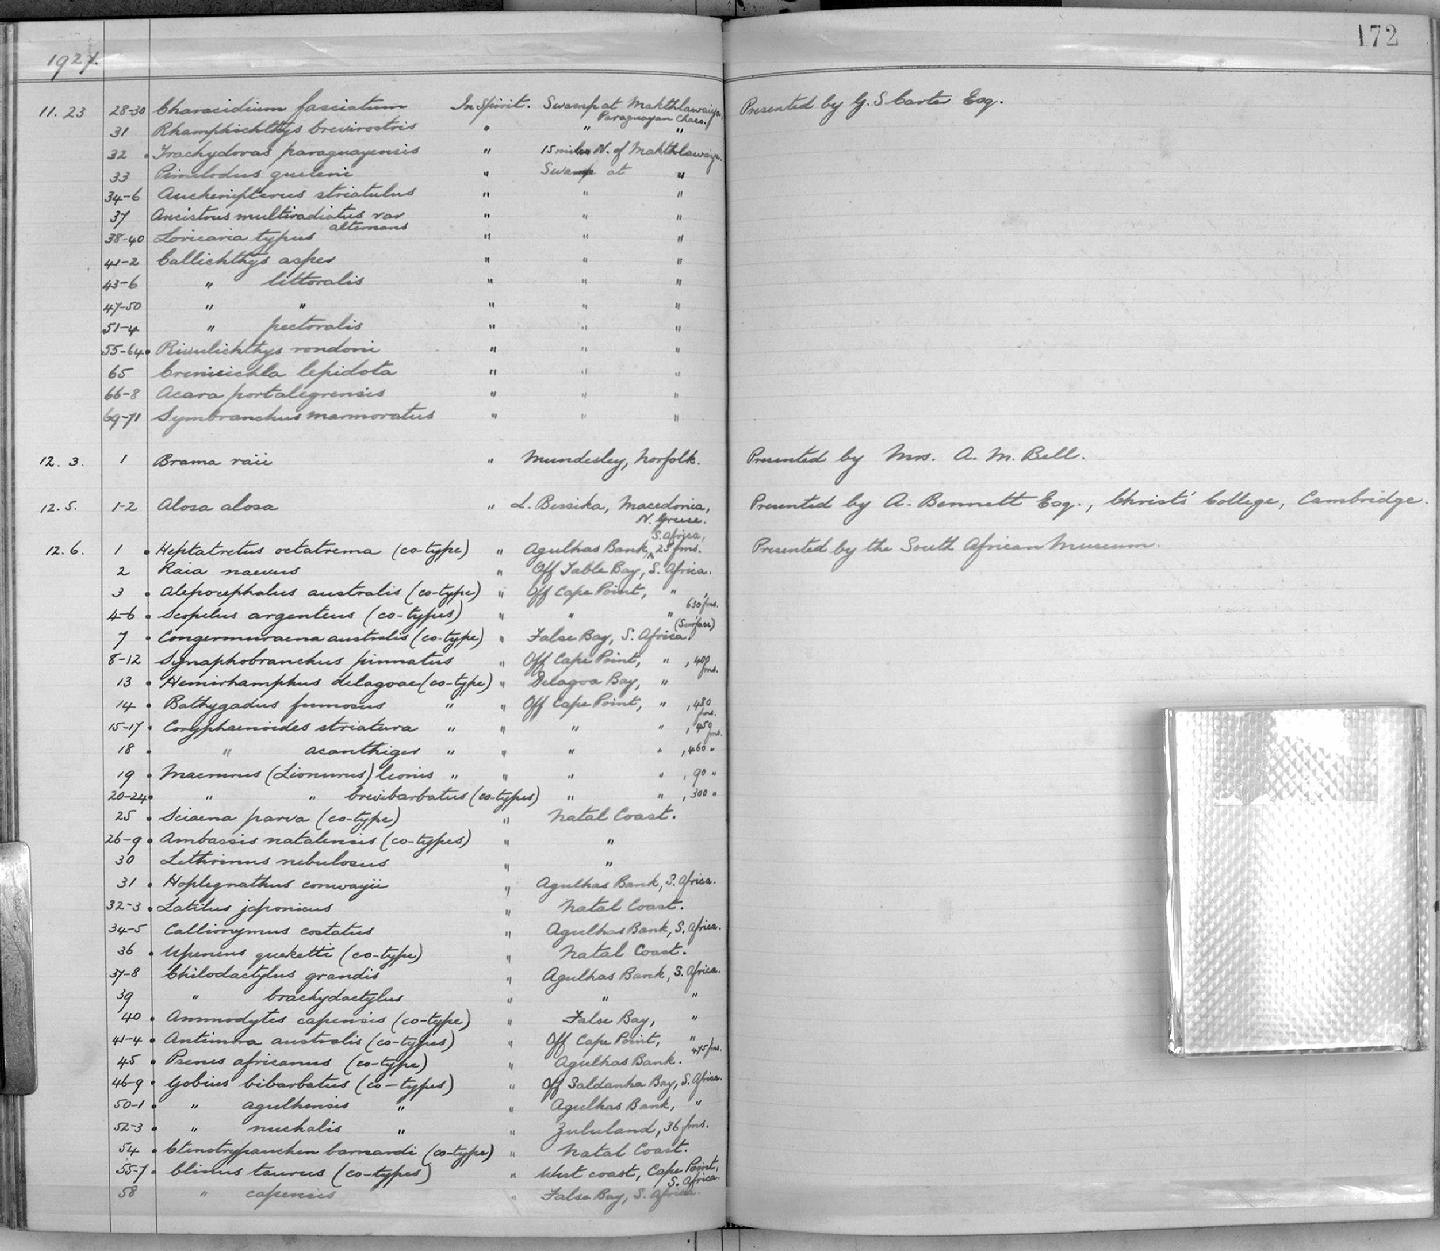 172
1927.
11. 23 28-30 Characidium fasciatum In Spirit. Swamp at Makthlawaiya, Paraguayan Chaco. Presented by G. S. Carter Esq.
31 Rhamphichthys brevirostris " " "
32 Trachydoras paraguayensis " 15 miles N. of Makthlawaiya.
33 Pimelodus queleni " Swamp at "
34-6 Auchenipterus striatulus " " "
37 Ancistrus multiradiatus var alternans " " "
38-40 Loricaria typus " " "
41-2 Callichthys asper " " "
43-6 " littoralis " " "
47-50 " " " " "
51-4 " pectoralis " " "
55-64 Rivulichthys rondoni " " "
65 Crenicichla lepidota " " "
66-8 Acara portalegrensis " " "
69-71 Symbranchus marmoratus " " "
12. 3. 1 Brama raii " Mundesley, Norfolk. Presented by Mrs. A. M. Bell.
12. 5. 1-2 Alosa alosa " L. Bessika, Macedonia, N. Greece. Presented by A. Bennett Esq., Christ's College, Cambridge.
12. 6. 1 Heptatretus octatrema (co-type) " Agulhas Bank, S. Africa, 25 fms. Presented by the South African Museum.
2 Raia naevus " Off Table Bay, S. Africa.
3 Alepocephalus australis (co-type) " Off Cape Point, " 630 fms.
4-6 Scopelus argenteus (co-types) " " " (Surface)
7 Congermuraena australis (co-type) " False Bay, S. Africa.
8-12 Synaphobranchus pinnatus " Off Cape Point, " , 400 fms.
13 Hemirhamphus delagoae (co-type) " Delagoa Bay, "
14 Bathygadus fumosus " " Off Cape Point, " , 480 fms.
15-17 Coryphaenoides striatura " " " " , 450 fms.
18 " acanthiger " " " " , 460 "
19 Macrurus (Lionurus) leonis " " " " , 90 "
20-24 " " brevibarbatus (co-types) " " , 300 "
25 Sciaena parva (co-type) " Natal Coast.
26-9 Ambassis natalensis (co-types) " "
30 Lethrinus nebulosus " "
31 Hoplegnathus conwayii " Agulhas Bank, S. Africa.
32-3 Latilus japonicus " Natal Coast.
34-5 Callionymus costatus " Agulhas Bank, S. Africa.
36 Upeneus gueketti (co-type) " Natal Coast.
37-8 Chilodactylus grandis " Agulhas Bank, S. Africa.
39 " brachydactylus " " "
40 Ammodytes capensis (co-type) " False Bay, "
41-4 Antimora australis (co-types) " Off Cape Point, " 475 fms.
45 Psenes africanus (co-type) " Agulhas Bank.
46-9 Gobius bibarbatus (co-types) " Off Saldanha Bay, S. Africa.
50-1 " agulhensis " " Agulhas Bank, "
52-3 " nuchalis " " Zululand, 36 fms.
54 Ctenotrypauchen barnardi (co-type) " Natal Coast.
55-7 Clinus taurus (co-types) " West coast, Cape Point, S. Africa.
58 " capensis " False Bay, S. Africa.